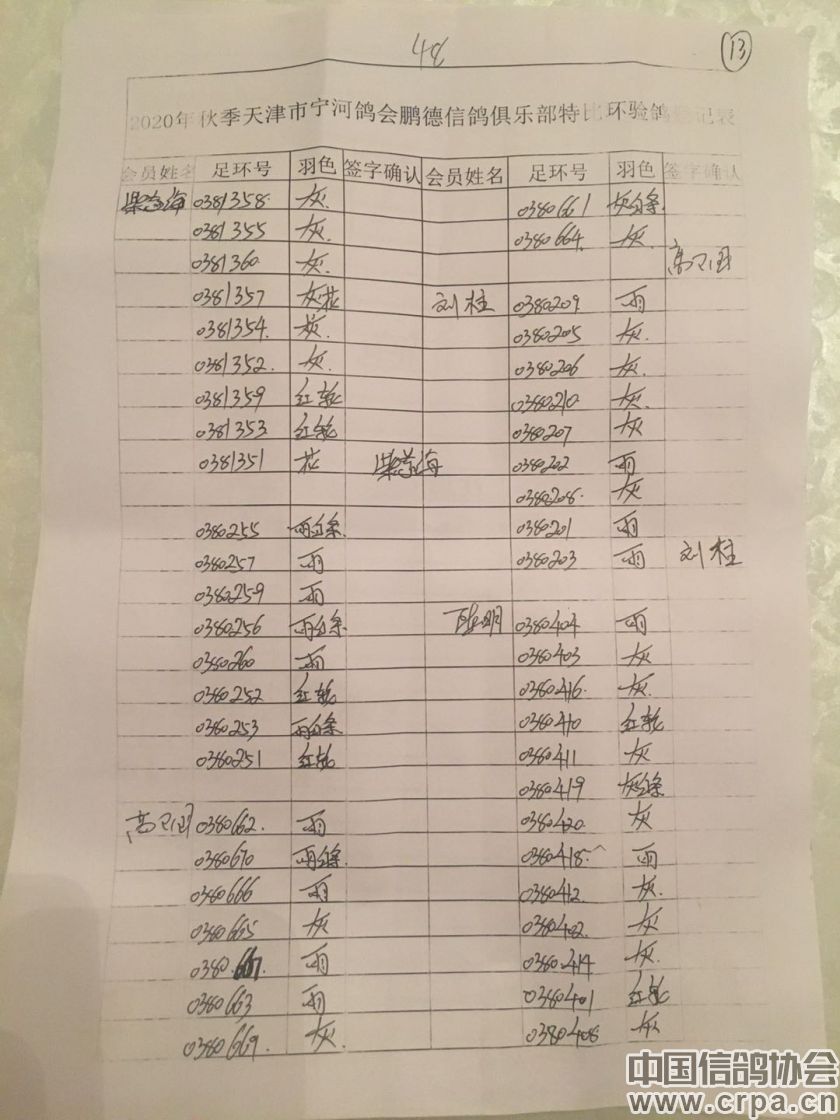 48
13
2020年秋季天津市宁河鸽会鹏德信鸽俱乐部特比环验鸽登记表
会员姓名 足环号 羽色 签字确认 会员姓名 足环号 羽色 签字确认
0381358 灰 0380661 灰白条
0381355 灰 0380664 灰
0381360 灰 高卫国
0381357 灰花 刘柱 0380209 雨
0381354 灰 0380205 灰
0381352 灰 0380206 灰
0381359 红轮 0380210 灰
0381353 红轮 0380207 灰
0381351 花 0380202 雨
0380208 灰
0380255 雨白条 0380201 雨
0380257 雨 0380203 雨 刘柱
0380259 雨
0380256 雨白条 0380404 雨
0380260 雨 0380403 灰
0380252 红轮 0380416 灰
0380253 雨白条 0380410 红轮
0380251 红轮 0380411 灰
0380419 灰白条
高卫国 0380662 雨 0380420 灰
0380670 雨白条 0380418 雨
0380666 雨 0380412 灰
0380665 灰 0380402 灰
0380667 雨 0380414 灰
0380663 雨 0380401 红轮
0380669 灰 0380408 灰
中国信鸽协会
www.crpa.cn